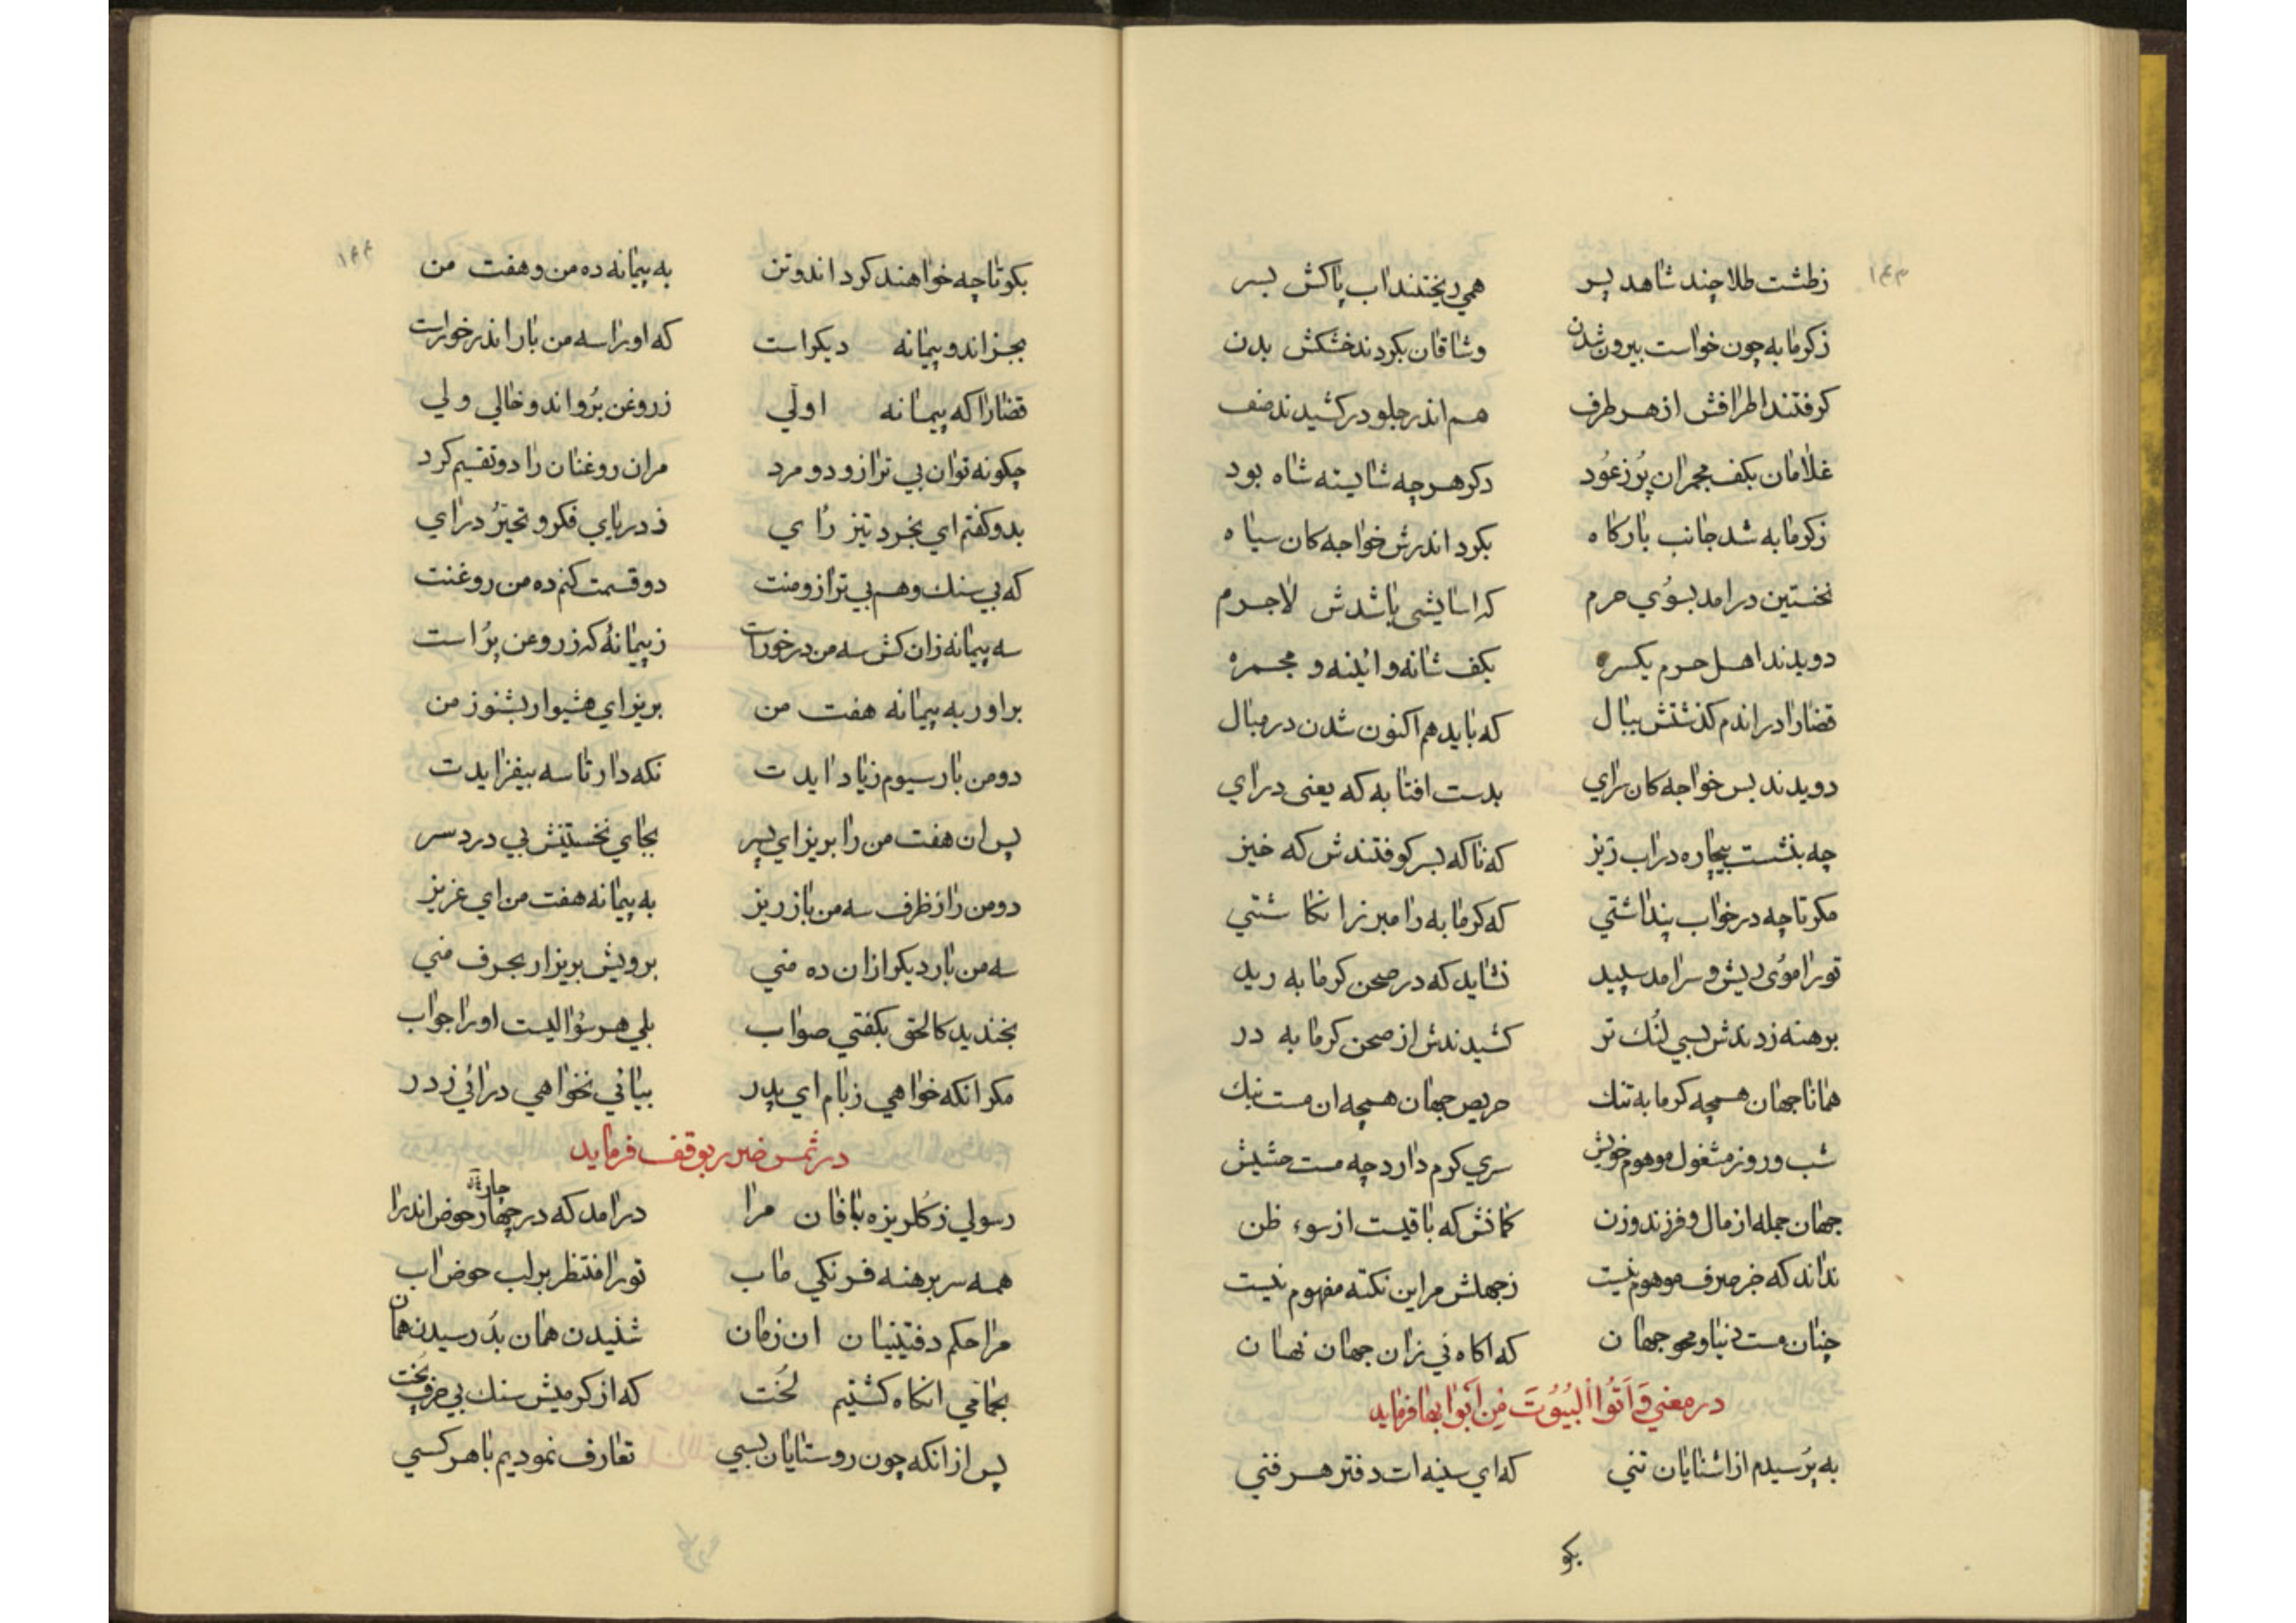 ۱۴۳
زطشت طلا چند شاهد پسر همی ریختند اب پاکش بسر
زکرمابه چون خواست بیرون شدن وشاقان بکردند خشکش بدن
کرفتند اطرافش از هر طرف هم اندر جلو در کشیدند صف
غلامان بکف مجمران پر زعود دکر هرچه شایسته شاه بود
زکرمابه شد جانب بارکاه بکرد اندرش خواجه کان سیاه
نخستین درامد بسوی حرم که اسایشی باشدش لاجرم
دویدند اهل حرم یکسره بکف شانه و ائینه و مجمره
قضارا دراندم کذشتش ببال که باید هم اکنون شدن در مبال
دویدند بس خواجه کان سرای بدست افتابه که یعنی درای
چه بنشست بیچاره دراب زیز که ناکه بسر کوفتندش که خیز
مکر تا چه در خواب پنداشتی که کرمابه را مبرز انکاشتی
تورا موی ریش و سر امد سپید نشاید که در صحن کرمابه رید
برهنه زدندش بسی لنک تر کشیدندش از صحن کرمابه در
همانا جهان همچه کرمابه تنک حریص جهان همچه ان مست بنک
شب و روز مشغول موهوم خویش سری کرم دارد چه مست حشیش
جهان جمله از مال و فرزند وزن کمانش که باقیست از سوء ظن
نداند که جز صرف موهوم نیست زجهلش مر این نکته مفهوم نیست
چنان مست دنیا و محو جهان که اکاه نی زان جهان نهان
در معنی وَاَتُوا البُیُوتَ مِن اَبوابها فرماید
به پرسیدم از اشنایان تنی که ای سینه ات دفتر هر فنی
بکو
۱۴۴
بکو تا چه خواهند کرد اندوتن به پیمانه ده من و هفت من
بجز اندو پیمانه دیکر است که اورا سه من بار اندر خور است
قضارا که پیمانه اولی زروغن پر و اند و خالی ولی
چکونه توان بی ترازو دو مرد مران روغنان را دو تقسیم کرد
بدو کفتم ای بخرد تیز رای ز دریای فکر و تحیر درای
که بی سنک و هم بی ترازو منت دو قسمت کنم ده من روغنت
سه پیمانه زان کش سه من در خور است زپیمانهٔ که زروغن پر است
براور به پیمانه هفت من بریز ای هشیوار بشنو ز من
دومن بار سیوم زیاد ایدت نکه دار تا سه بیفزایدت
پس ان هفت من را بریز ای پسر بجای نخستینش بی درد سر
دومن را زظرف سه من باز ریز به پیمانه هفت من ای عزیز
سه من بار دیکر ازان ده منی برویش بریز ار بحرف منی
بخندید کالحق بکفتی صواب بلی هر سؤالیست اورا جواب
مکر انکه خواهی زبام ای پدر بیائی نخواهی درائی زدر
در ثمس ضرر بوقف فرماید
رسولی زکلریزه بافان مرا درامد که در چهار حوض اندرا
همه سر برهنه فرنکی ماب تورا منتظر بر لب حوض اب
مرا حکم دفتینیان ان زمان شنیدن همان بد رسیدن همان
بجمامی انکاه کشتیم لخت که از کرمیش سنک بی حرف پخت
پس از انکه چون روستایان بسی تعارف نمودیم با هر کسی